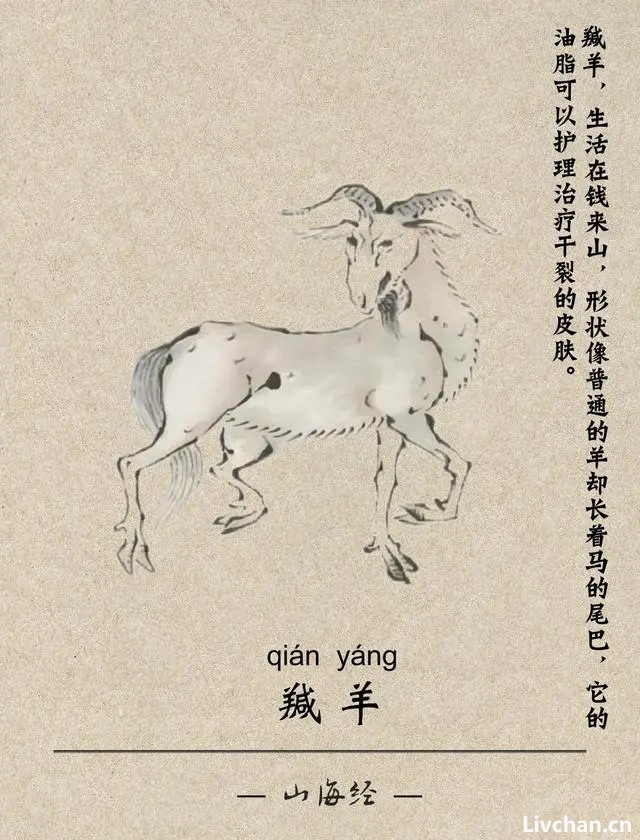 羬羊，生活在钱来山，形状像普通的羊却长着马的尾巴，它的
油脂可以护理治疗干裂的皮肤。
qián yáng
羬羊
— 山海经 —
Livchan.cn